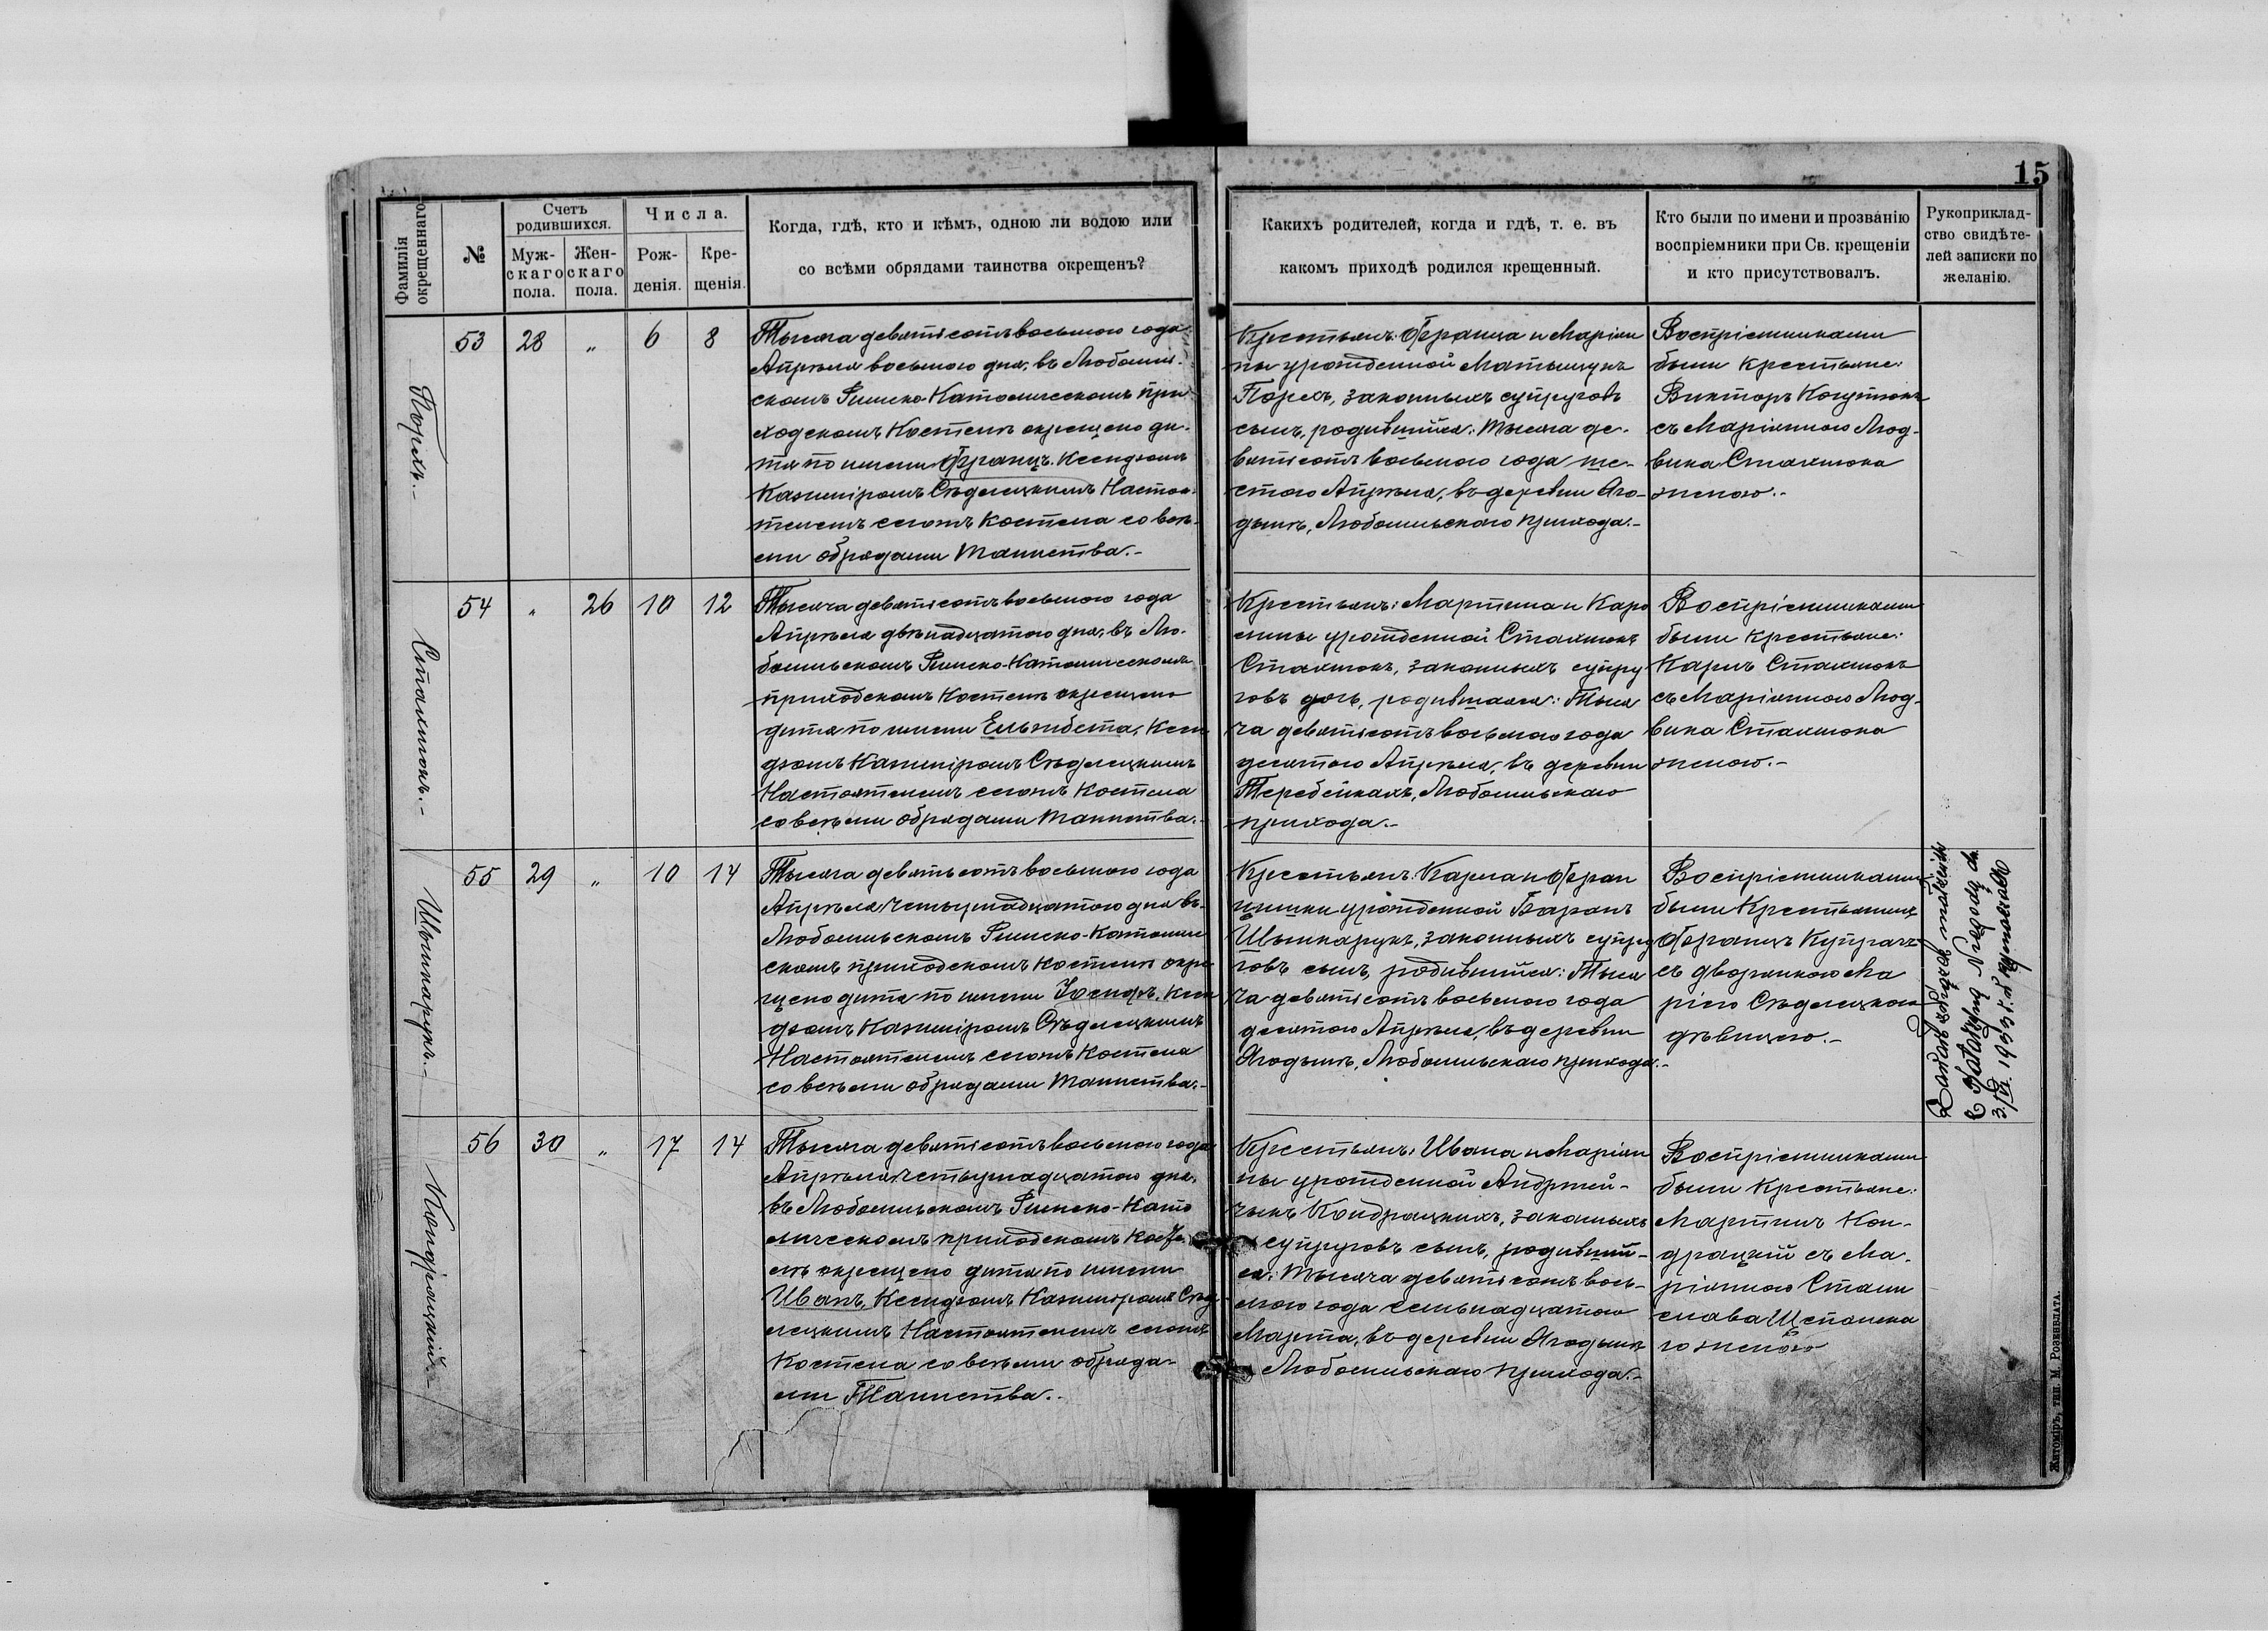 15
Фамилія
окрещеннаго
№
Счетъ
родившихся.
Муж-
скаго
пола.
Жен-
скаго
пола.
Числа.
Рож-
денія.
Кре-
щенія.
Когда, гдѣ, кто и кѣмъ, одною ли водою или
со всѣми обрядами таинства окрещенъ?
Какихъ родителей, когда и гдѣ, т. е. въ
какомъ приходѣ родился крещенный.
Кто были по имени и прозванію
воспріемники при Св. крещеніи
и кто присутствовалъ.
Рукоприклад-
ство свидѣте-
лей записки по
желанію.
Порехъ.-
53
28
„
6
8
Тысяча девятьсотъ восьмого года
Апрѣля восьмого дня, въ Любомль-
скомъ Римско-Католическомъ при-
ходскомъ Костелѣ окрещено ди-
тя по имени Францъ. Ксендзомъ
Казиміромъ Сѣдлецкимъ Настоя-
телемъ сегожъ Костела со всѣ-
ми обрядами Таинства.-
Крестьянъ: Франца и Маріан
ны урожденной Матыщукъ
Порехъ, законныхъ супруговъ
сынъ, родившійся: Тысяча де-
вятьсотъ восьмого года ше-
стого Апрѣля, въ деревнѣ Яго-
дынѣ, Любомльскаго прихода.-
Воспріемниками
были крестьяне:
Викторъ Когутюкъ
съ Маріянною Люд-
вика Стахнюка
женою.-
Стахнюкъ.-
54
„
26
10
12
Тысяча девятьсотъ восьмого года
Апрѣля двѣнадцатого дня, въ Лю-
бомльскомъ Римско-Католическомъ
приходскомъ Костелѣ окрещено
дитя по имени Ельжбета, Ксен
дзомъ Казиміромъ Сѣдлецкимъ
Настоятелемъ сегожъ Костела
со всѣми обрядами Таинства.-
Крестьянъ: Мартина и Каро
лины урожденной Стахнюкъ
Стахнюкъ, законныхъ супру
говъ дочь, родившаяся: Тыся
ча девятьсотъ восьмого года
десятого Апрѣля, въ деревнѣ
Теребейкахъ, Любомльскаго
прихода.-
Воспріемниками
были крестьяне:
Карлъ Стахнюкъ
съ Маріянною Люд-
вика Стахнюка
женою.-
Швынкарукъ.-
55
29
„
10
14
Тысяча девятьсотъ восьмого года
Апрѣля четырнадцатого дня въ
Любомльскомъ Римско-Католиче
скомъ приходскомъ Костелѣ окре
щено дитя по имени Іосифъ, Ксен
дзомъ Казиміромъ Сѣдлецкимъ
Настоятелемъ сегожъ Костела
со всѣми обрядами Таинства.-
Крестьянъ: Карла и Фран
цишки урожденной Баранъ
Швынкарукъ, законныхъ супру
говъ сынъ, родившійся: Тыся
ча девятьсотъ восьмого года
десятого Апрѣля, въ деревнѣ
Ягодынѣ, Любомльскаго прихода.-
Воспріемниками
были Крестьянинъ
Францъ Купрачъ
съ дворянкою Ма
ріею Сѣдлецкою
дѣвицею.-
Zawarł związek małżeński
z Katarzyną
3/VI. 1933 r. w Rymaczach
Кондрацкій.-
56
30
„
17
14
Тысяча девятьсотъ восьмого года
Апрѣля четырнадцатого дня,
въ Любомльскомъ Римско-Като
лическомъ приходскомъ Косте
лѣ окрещено дитя по имени
Иванъ, Ксендзомъ Казиміромъ Сѣд
лецкимъ Настоятелемъ сегожъ
Костела со всѣми обряда-
ми Таинства.-
Крестьянъ: Ивана и Маріан
ны урожденной Андржей-
чукъ Кондрацкихъ, законныхъ
супруговъ сынъ, родившій-
ся: Тысяча девятьсотъ вось-
мого года семьнадцатого
Марта, въ деревнѣ Ягодынѣ
Любомльскаго прихода.-
Воспріемниками
были Крестьяне:
Мартинъ Кон-
драцкій съ Ма-
ріянною Стани
слава Щепанска
го женою
Житоміръ, тип. М. Розенблата.